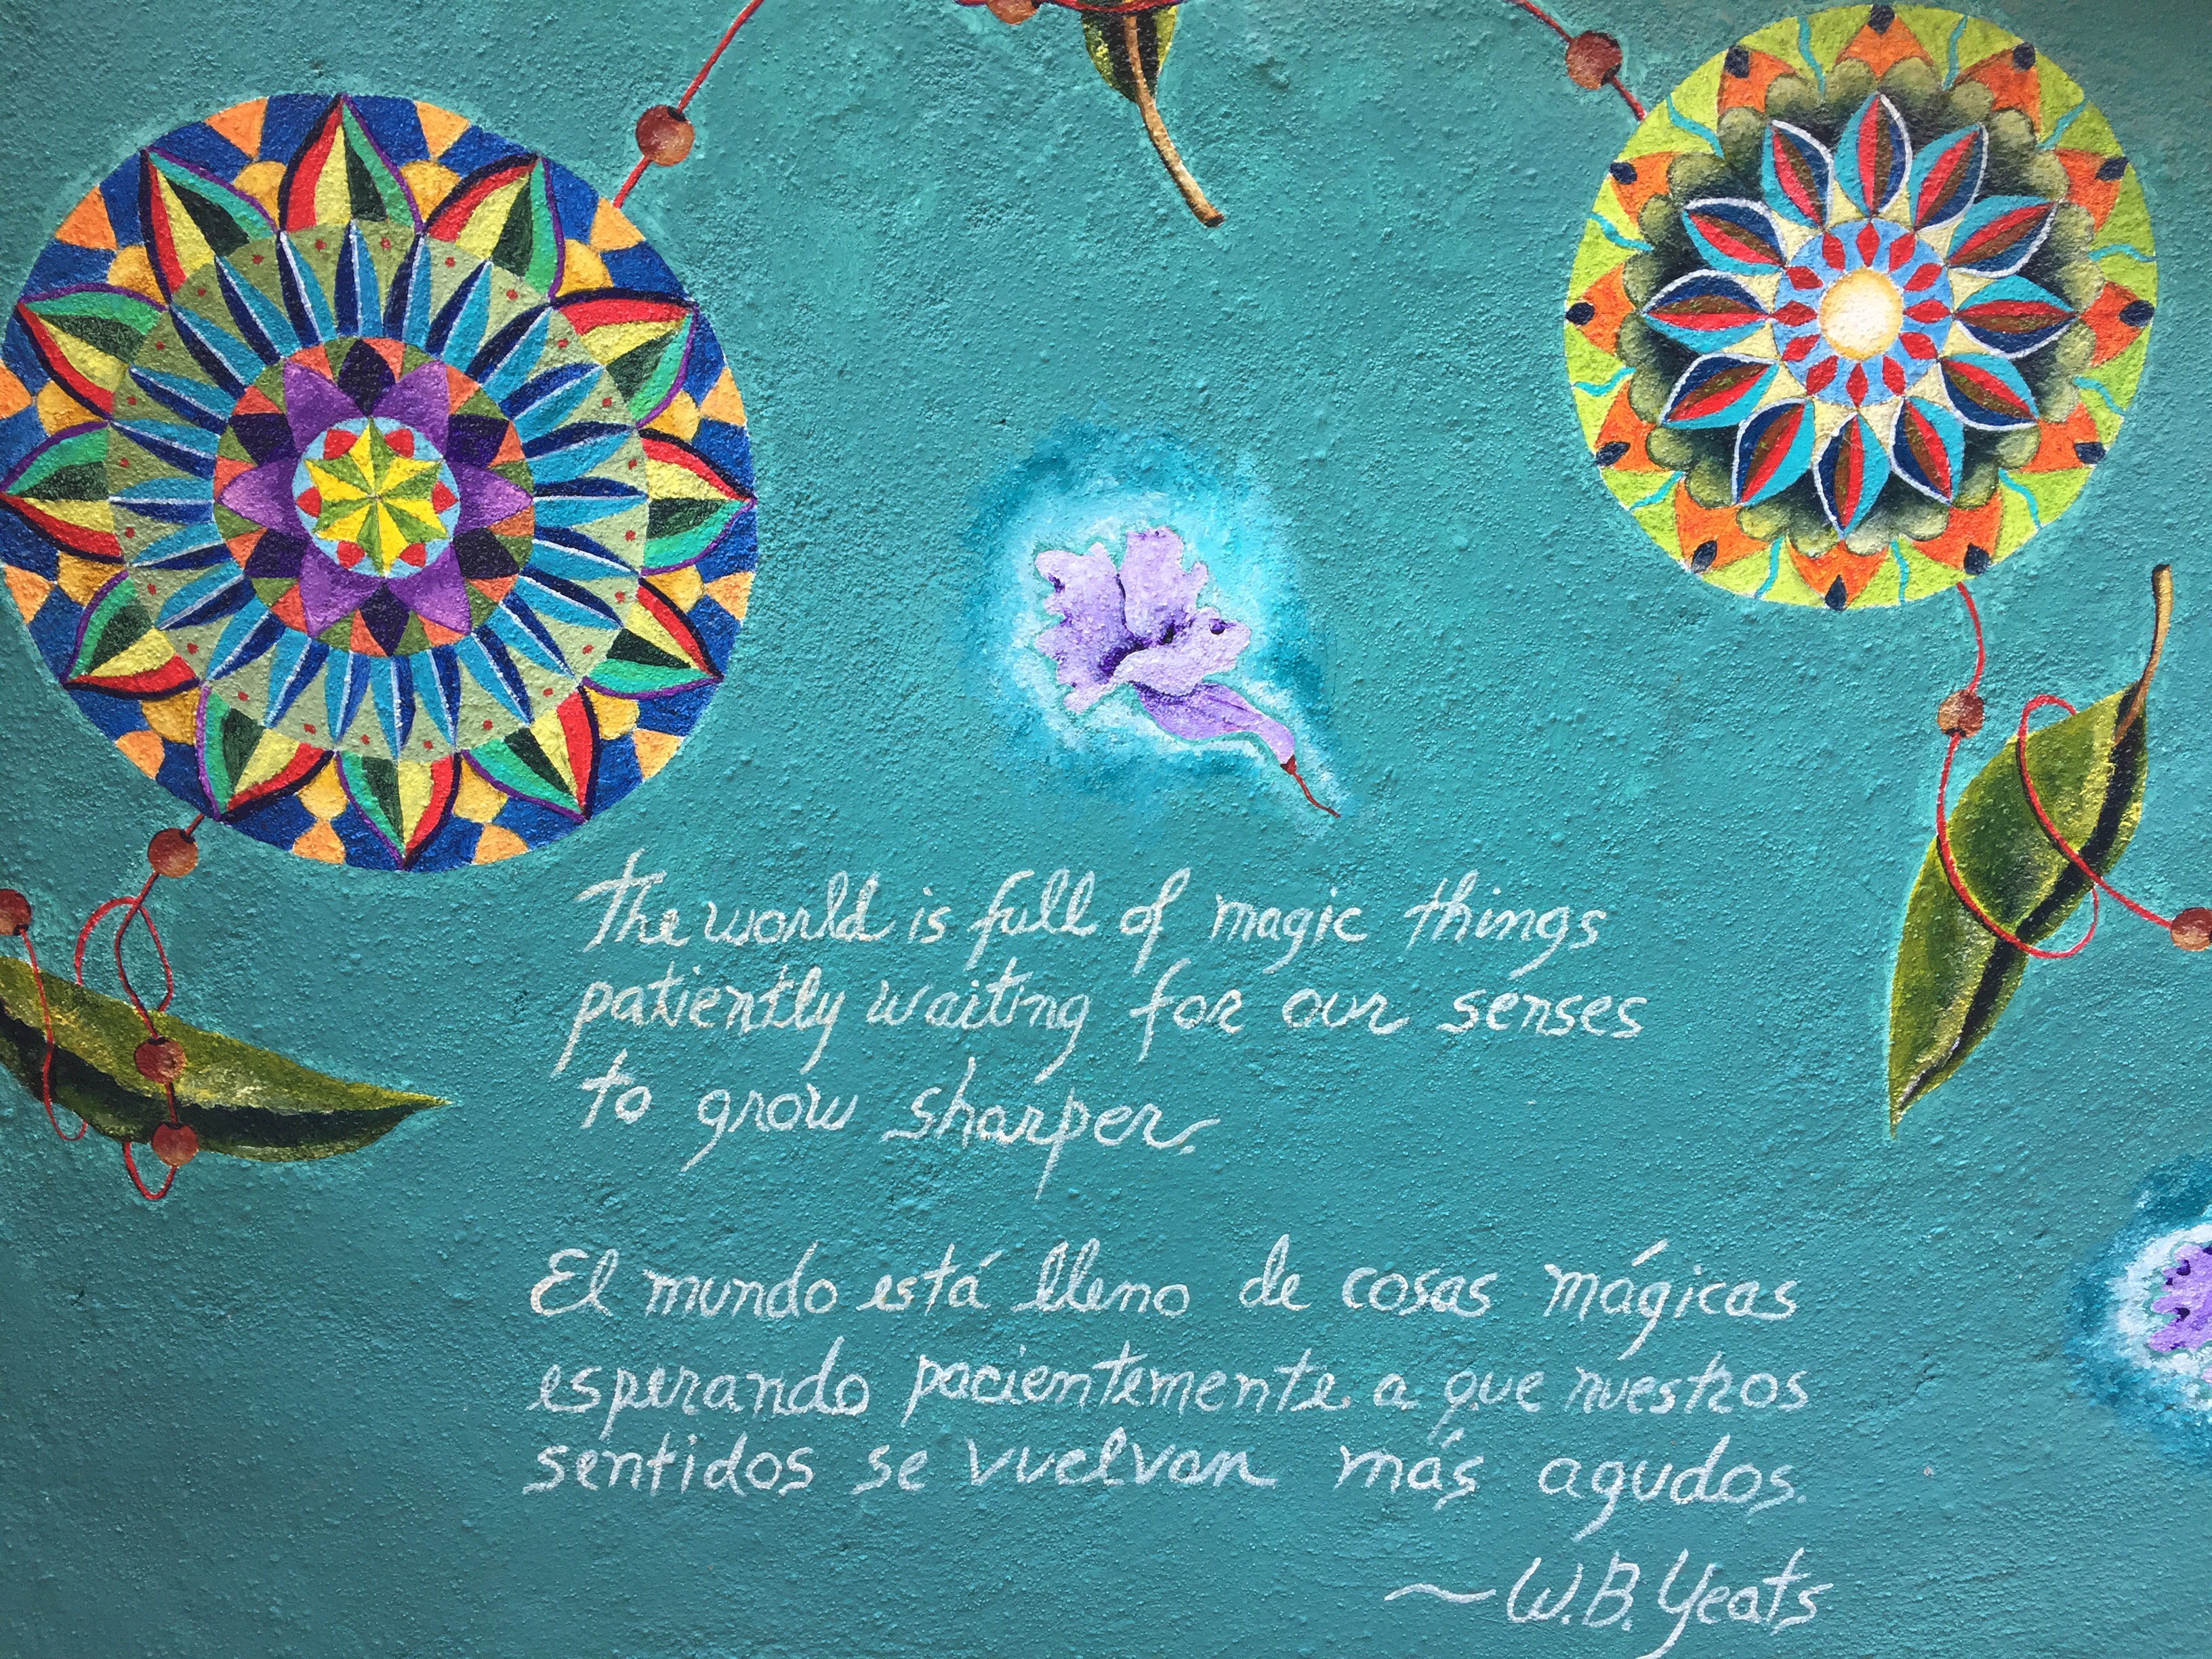 The world is full of magic things
patiently waiting for our senses
to grow sharper.
El mundo está lleno de cosas mágicas
esperando pacientemente a que nuestros
sentidos se vuelvan más agudos.
~W.B. Yeats